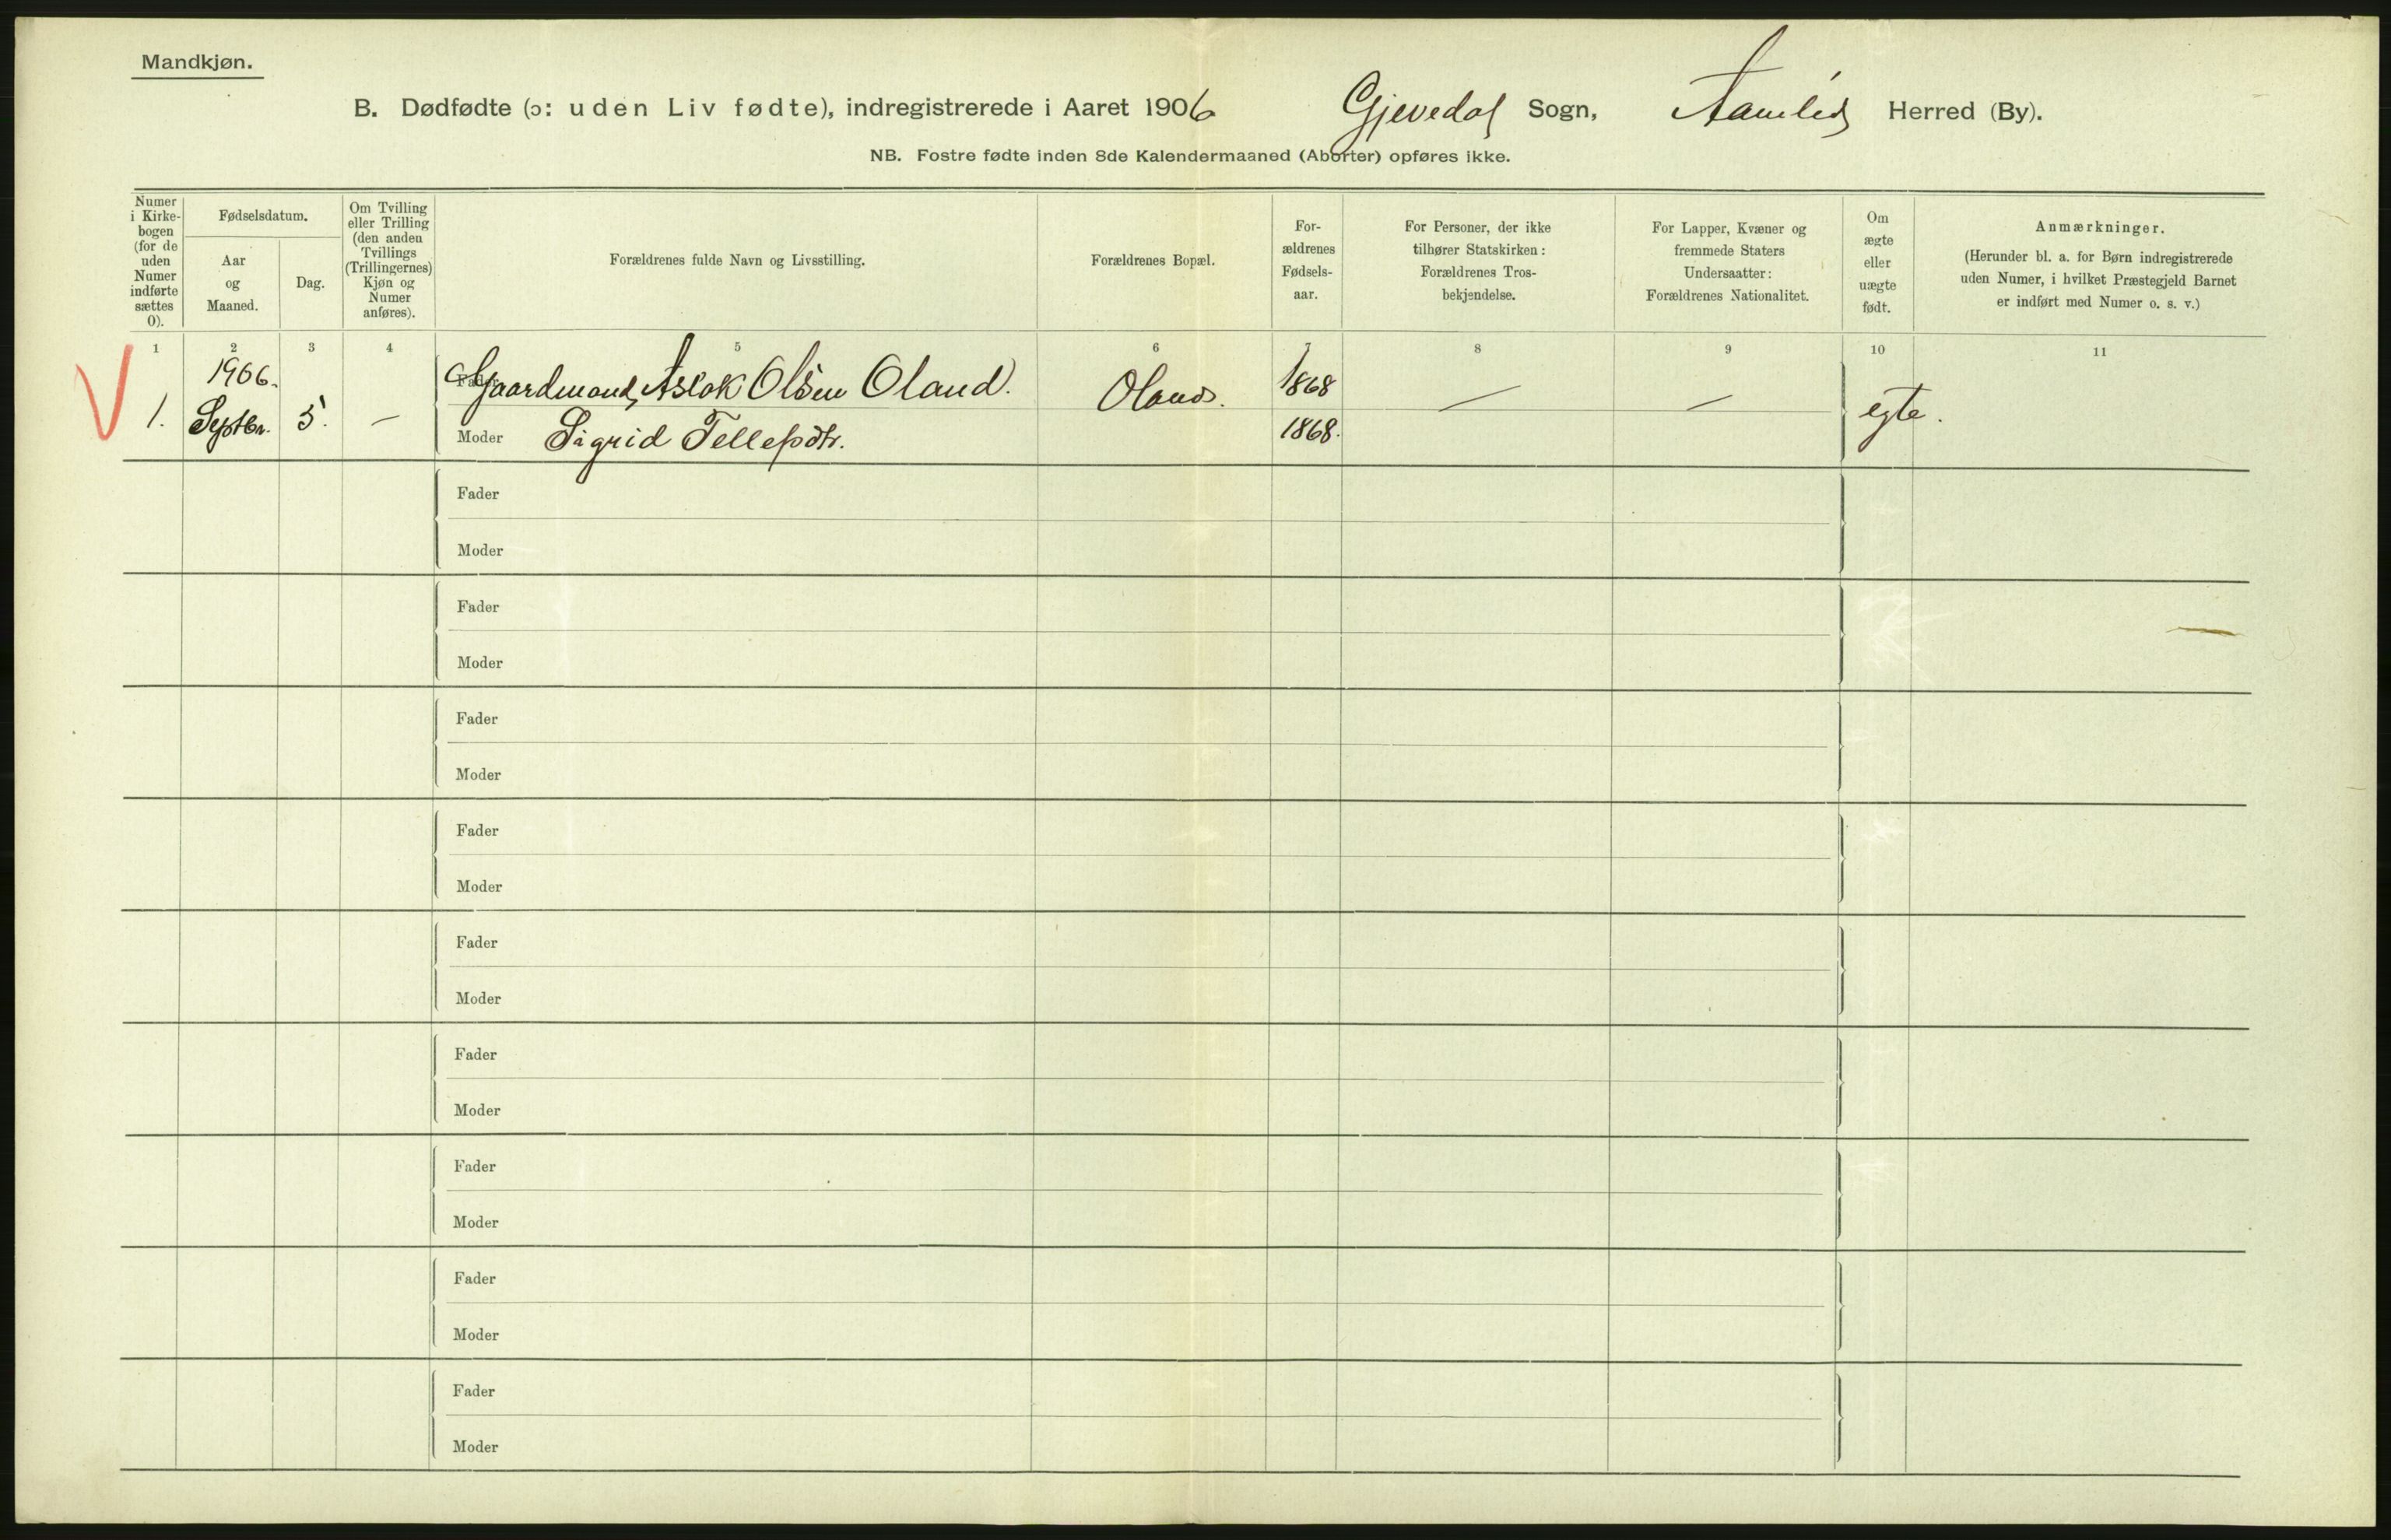 Mandkjøn.
B. Dødfødte (ɔ: uden Liv fødte), indregistrerede i Aaret 1906 Gjevedal Sogn, Aamlid Herred (By).
NB. Fostre fødte inden 8de Kalendermaaned (Aborter) opføres ikke.
Numer i Kirke-bogen (for de uden Numer indførte sættes 0).
Fødselsdatum.
Aar og Maaned.
Dag.
Om Tvilling eller Trilling (den anden Tvillings (Trillingernes) Kjøn og Numer anføres).
Forældrenes fulde Navn og Livsstilling.
Forældrenes Bopæl.
For-ældrenes Fødsels-aar.
For Personer, der ikke tilhører Statskirken: Forældrenes Tros-bekjendelse.
For Lapper, Kvæner og fremmede Staters Undersaatter: Forældrenes Nationalitet.
Om ægte eller uægte født.
Anmærkninger.
(Herunder bl. a. for Børn indregistrerede uden Numer, i hvilket Præstegjeld Barnet er indført med Numer o. s. v.)
1 2 3 4 5 6 7 8 9 10 11
1906.
Fader Gaardmand, Aslok Olsen Oland. Oland. 1868 — —
1. Septbr. 5. — egte.
Moder Sigrid Tellefsdtr. 1868.
Fader
Moder
Fader
Moder
Fader
Moder
Fader
Moder
Fader
Moder
Fader
Moder
Fader
Moder
Fader
Moder
Fader
Moder